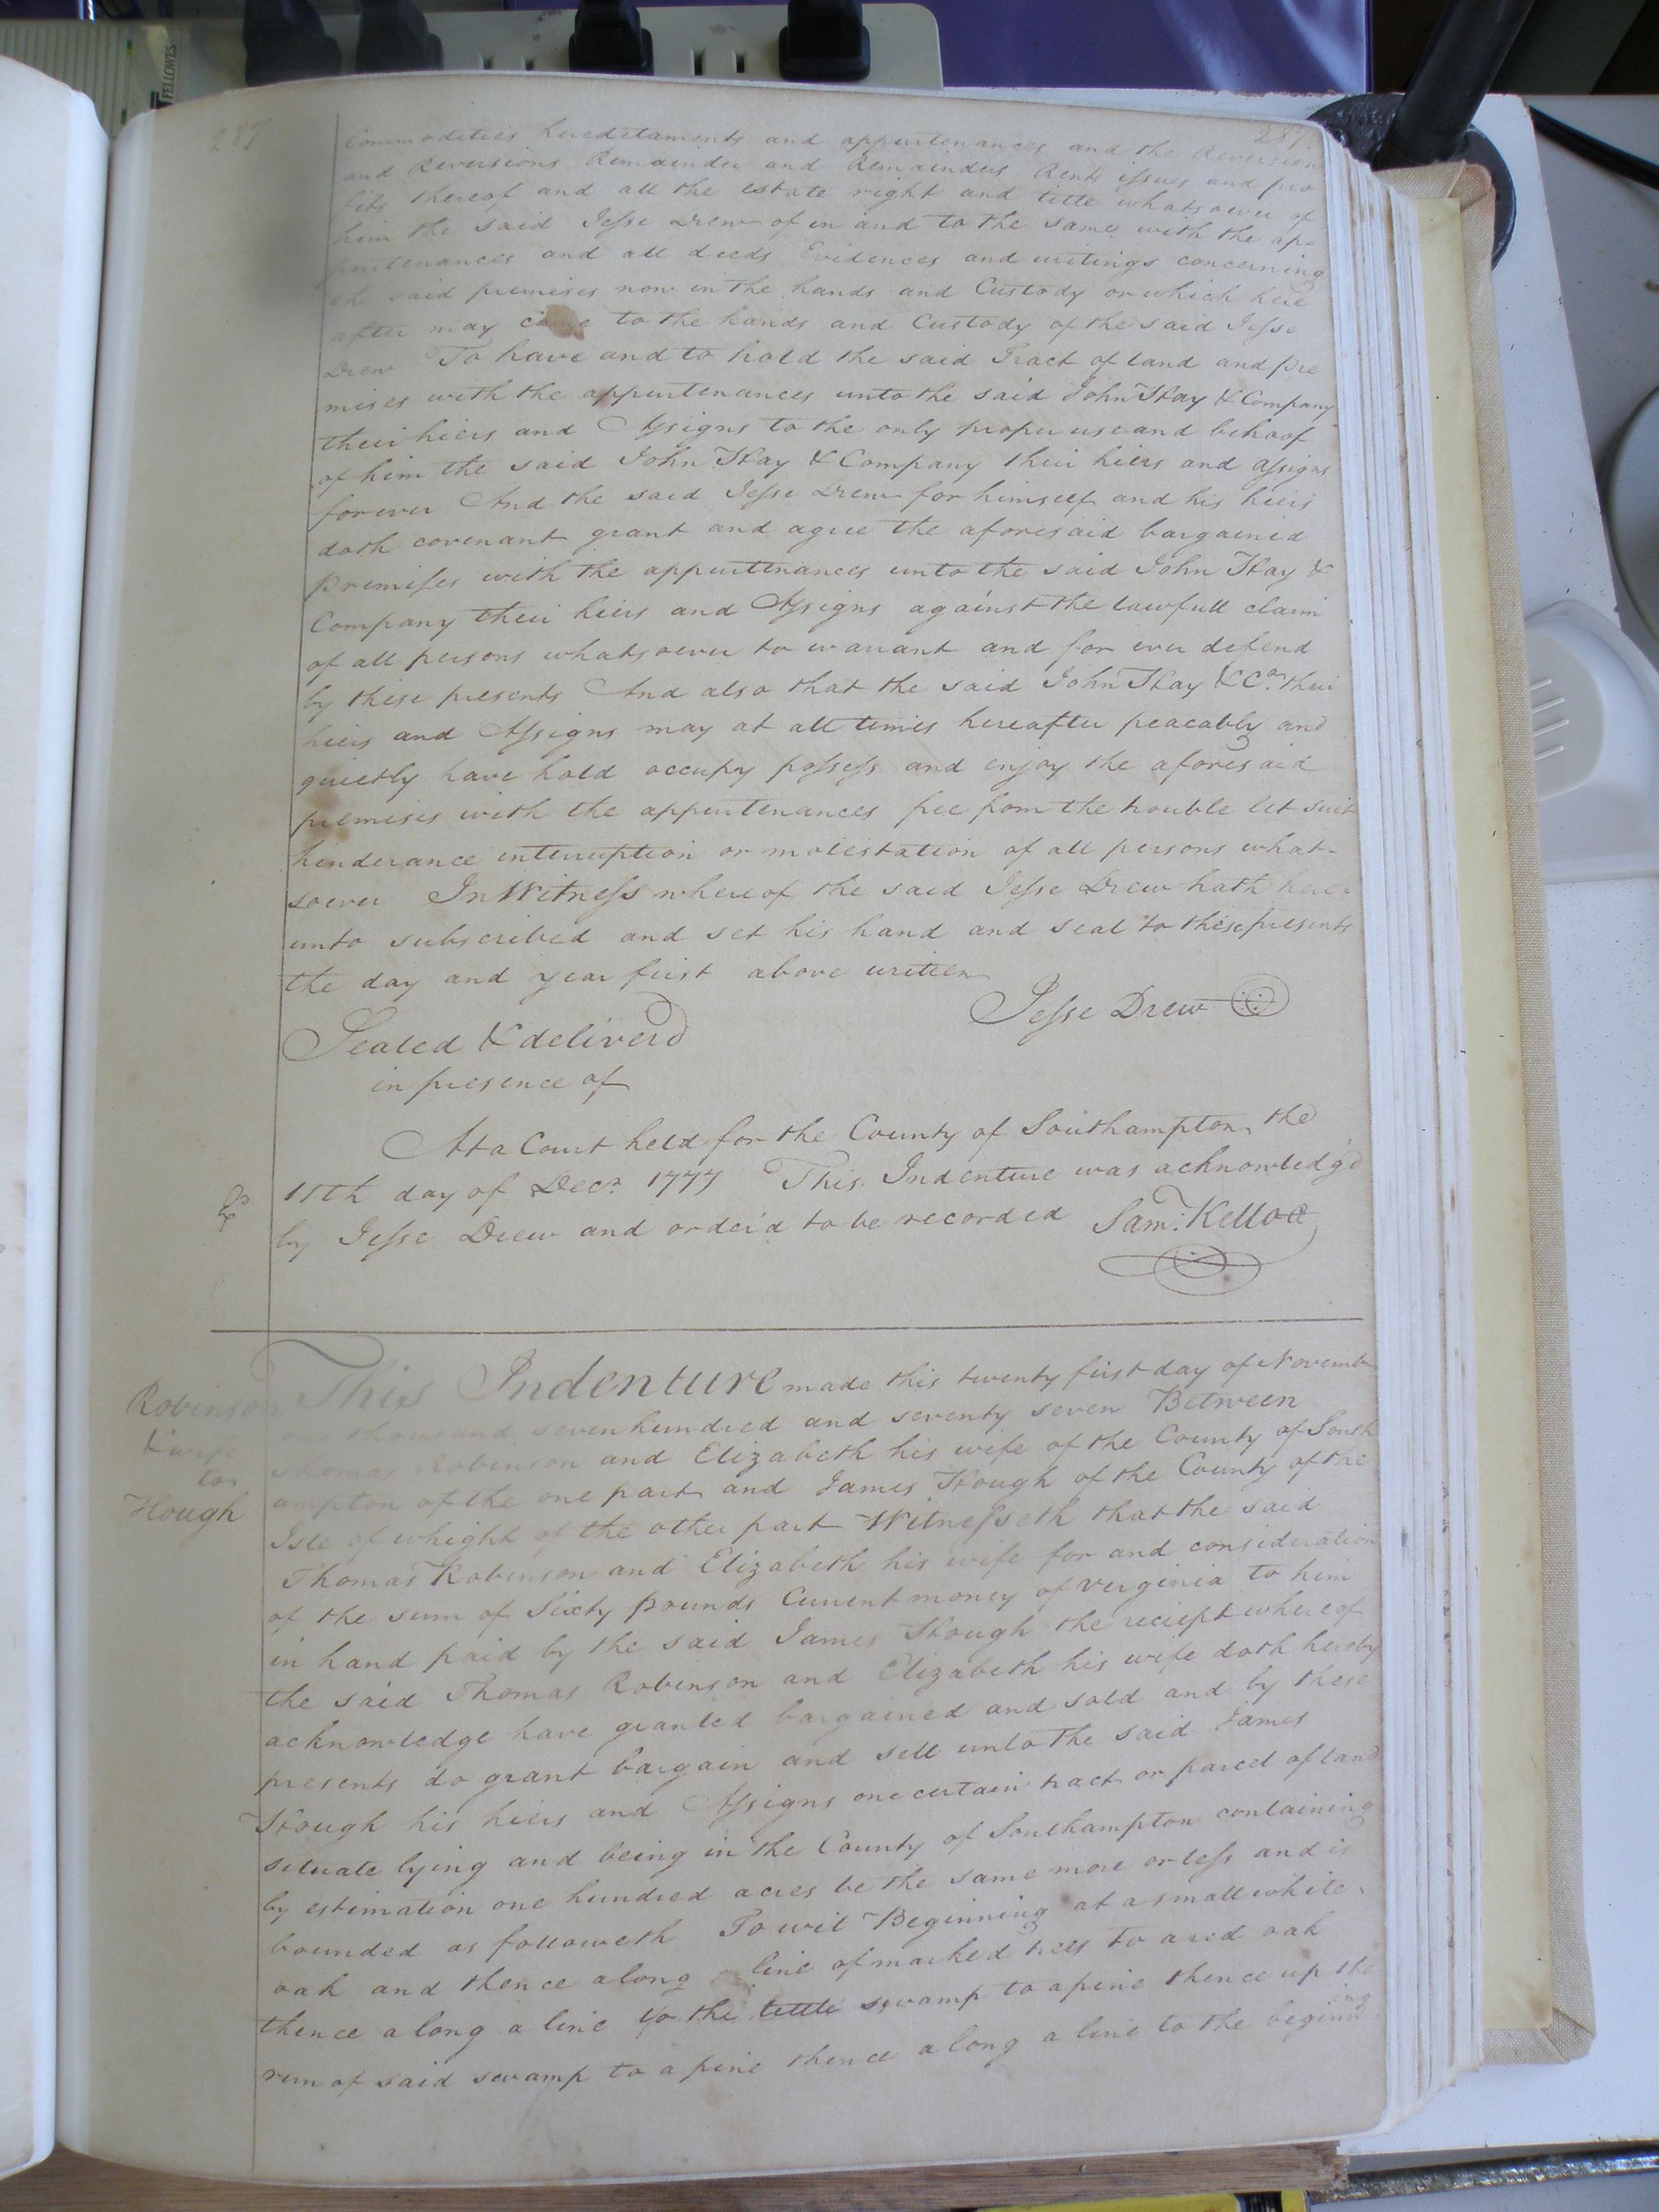 FELLOWES
287
287
Commodities hereditaments and appurtenances and the Reversion
and Reversions Remainder and Remainders Rents issues and pro
fits thereof and all the estate right and title whatsoever of
him the said Jesse Drew of in and to the same with the ap=
purtenances and all deeds Evidences and writings concerning
the said premises now in the hands and Custody or which here
after may come to the hands and Custody of the said Jesse
Drew To have and to hold the said Tract of land and pre
mises with the appurtenances unto the said John Hay & Company
their hiers and Assigns to the only proper use and behoof
of him the said John Hay & Company their hiers and assigns
forever And the said Jesse Drew for himself and his hiers
doth covenant grant and agree the aforesaid bargained
premises with the appurtenances unto the said John Hay &
Company their hiers and Assigns against the lawfull claim
of all persons whatsoever to warrant and for ever defend
by these presents And also that the said John Hay & Co. their
hiers and Assigns may at all times hereafter peacably and
quietly have hold occupy possess and enjoy the aforesaid
premises with the appurtenances free from the trouble let suit
henderance interruption or molestation of all persons what-
soever In Witness whereof the said Jesse Drew hath here=
unto subscribed and set his hand and seal to these presents
the day and year first above written
Jesse Drew
Sealed & deliver'd
in presence of
At a Court held for the County of Southampton the
11th day of Decr. 1777 This Indenture was acknowledg'd
by Jesse Drew and order'd to be recorded Sam: Kello
Robinson
& wife
to
Hough
This Indenture made this twenty first day of November
one thousand seven hundred and seventy seven Between
Thomas Robinson and Elizabeth his wife of the County of South
ampton of the one part and James Hough of the County of the
Isle of whight of the other part Witnesseth that the said
Thomas Robinson and Elizabeth his wife for and consideration
of the sum of Sixty pounds Current money of Verginia to him
in hand paid by the said James Hough the reciept whereof
the said Thomas Robinson and Elizabeth his wife doth hereby
acknowledge have granted bargained and sold and by these
presents do grant bargain and sell unto the said James
Hough his hiers and Assigns one certain tract or parcel of land
situate lying and being in the County of Southampton containing
by estimation one hundred acres be the same more or less and is
bounded as followeth To wit Beginning at a small white
oak and thence along line of marked trees to a red oak
thence along a line to the little swamp to a pine thence up the
run of said swamp to a pine thence along a line to the beginning